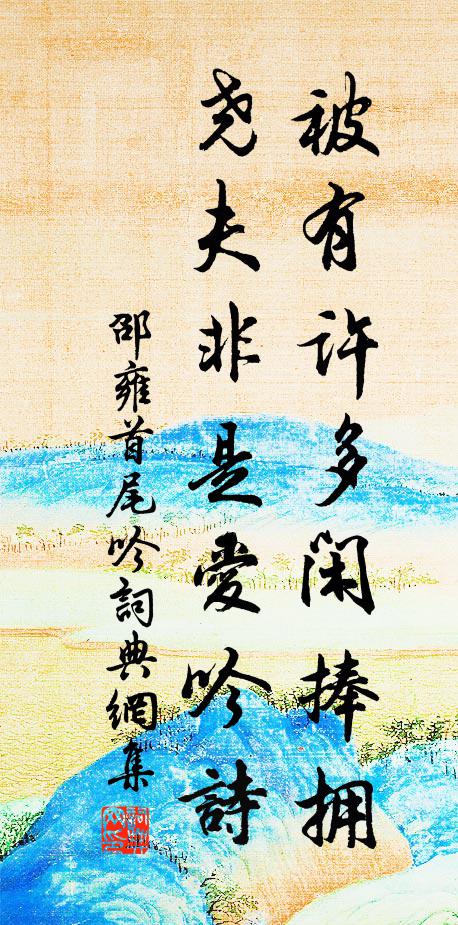 被有许多闲捧拥
尧夫非是爱吟詩
邵雍首尾吟詞典網集